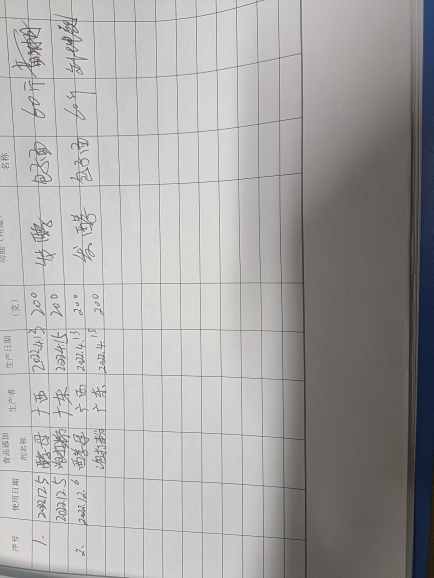 序号 使用日期 食品添加剂名称 生产者 生产日期 （克） 功能（用途） 名称
1. 2022.12.5 酵母 广西 2022.4.13 200 发酵 包子面 60斤
2022.12.5 泡打粉 广东 2022.4.15 200
2、 2022.12.6 酵母 广西 2022.4.13 200 发酵 包子面 60斤
泡打粉 广东 2022.4.15 200